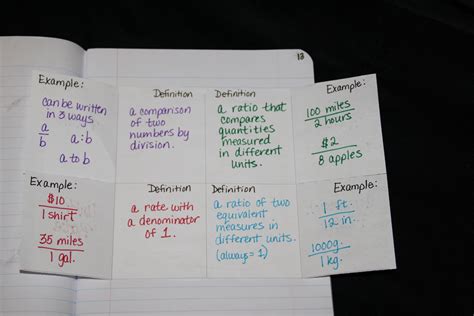 13
Example:
can be written
in 3 ways.
a
b
a:b
a to b
Definition
a comparison
of two
numbers by
division.
Definition
a ratio that
compares
quantities
measured
in different
units.
Example:
100 miles
2 hours
$2
8 apples
Example:
$10
1 shirt
35 miles
1 gal.
Definition
a rate with
a denominator
of 1.
Definition
a ratio of two
equivalent
measures in
different units.
(always = 1)
Example:
1 ft.
12 in.
1000g.
1 kg.